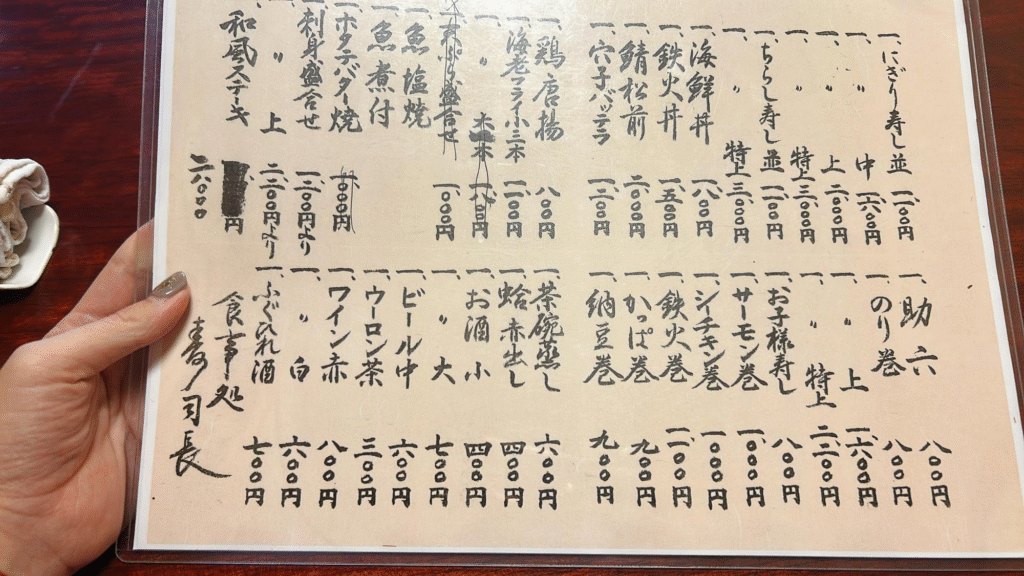 一、にぎり寿し並 一、一〇〇円
一、〃 中 一、六〇〇円
一、〃 上 二、〇〇〇円
一、〃 特上 三、〇〇〇円
一、ちらし寿し並 一、一〇〇円
一、〃 特上 三、〇〇〇円
一、海鮮丼 一、八〇〇円
一、鉄火丼 一、五〇〇円
一、鯖松前 二、〇〇〇円
一、穴子バッテラ 一、三〇〇円
一、鶏唐揚 八〇〇円
一、海老フライ小三本 一、一〇〇円
一、〃
一、〇〇〇円
一、魚塩焼
一、魚煮付
一、ホタテバター焼 一、〇〇〇円
一、刺身盛合せ 一、三〇〇円より
一、〃 上 二、二〇〇円より
和風ステーキ 円
一、助六 八〇〇円
一、のり巻 八〇〇円
一、〃 上 一、六〇〇円
一、〃 特上 二、二〇〇円
一、お子様寿し 八〇〇円
一、サーモン巻 一、〇〇〇円
一、シーチキン巻 一、〇〇〇円
一、鉄火巻 一、一〇〇円
一、かっぱ巻 九〇〇円
一、納豆巻 九〇〇円
一、茶碗蒸し 六〇〇円
一、蛤赤出し 四〇〇円
一、お酒 小 四〇〇円
一、〃 大 七〇〇円
一、ビール中 六〇〇円
一、ウーロン茶 三〇〇円
一、ワイン赤 八〇〇円
一、〃 白 六〇〇円
一、ふぐひれ酒 七〇〇円
食事処
寿司長